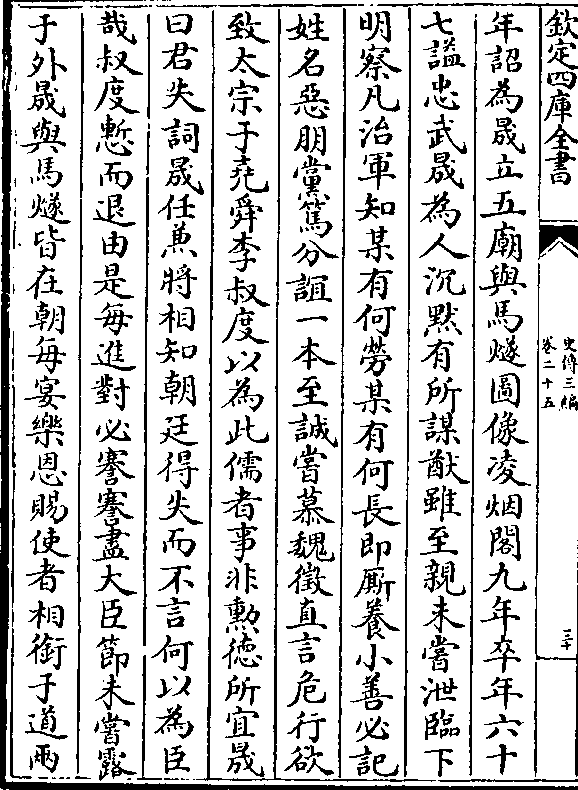 欽定四庫全書
史傳三編
卷二十五
三十
年詔為晟立五廟與馬燧圖像凌烟閣九年卒年六十
七諡忠武晟為人沉黙有所謀猷雖至親未嘗泄臨下
明察凡治軍知某有何勞某有何長即厮養小善必記
姓名惡朋黨篤分誼一本至誠嘗慕魏徵直言危行欲
致太宗于堯舜李叔度以為此儒者事非勲徳所宜晟
曰君失詞晟任兼將相知朝廷得失而不言何以為臣
哉叔度慙而退由是每進對必謇謇盡大臣節未嘗露
于外晟與馬燧皆在朝每宴樂恩賜使者相銜于道兩